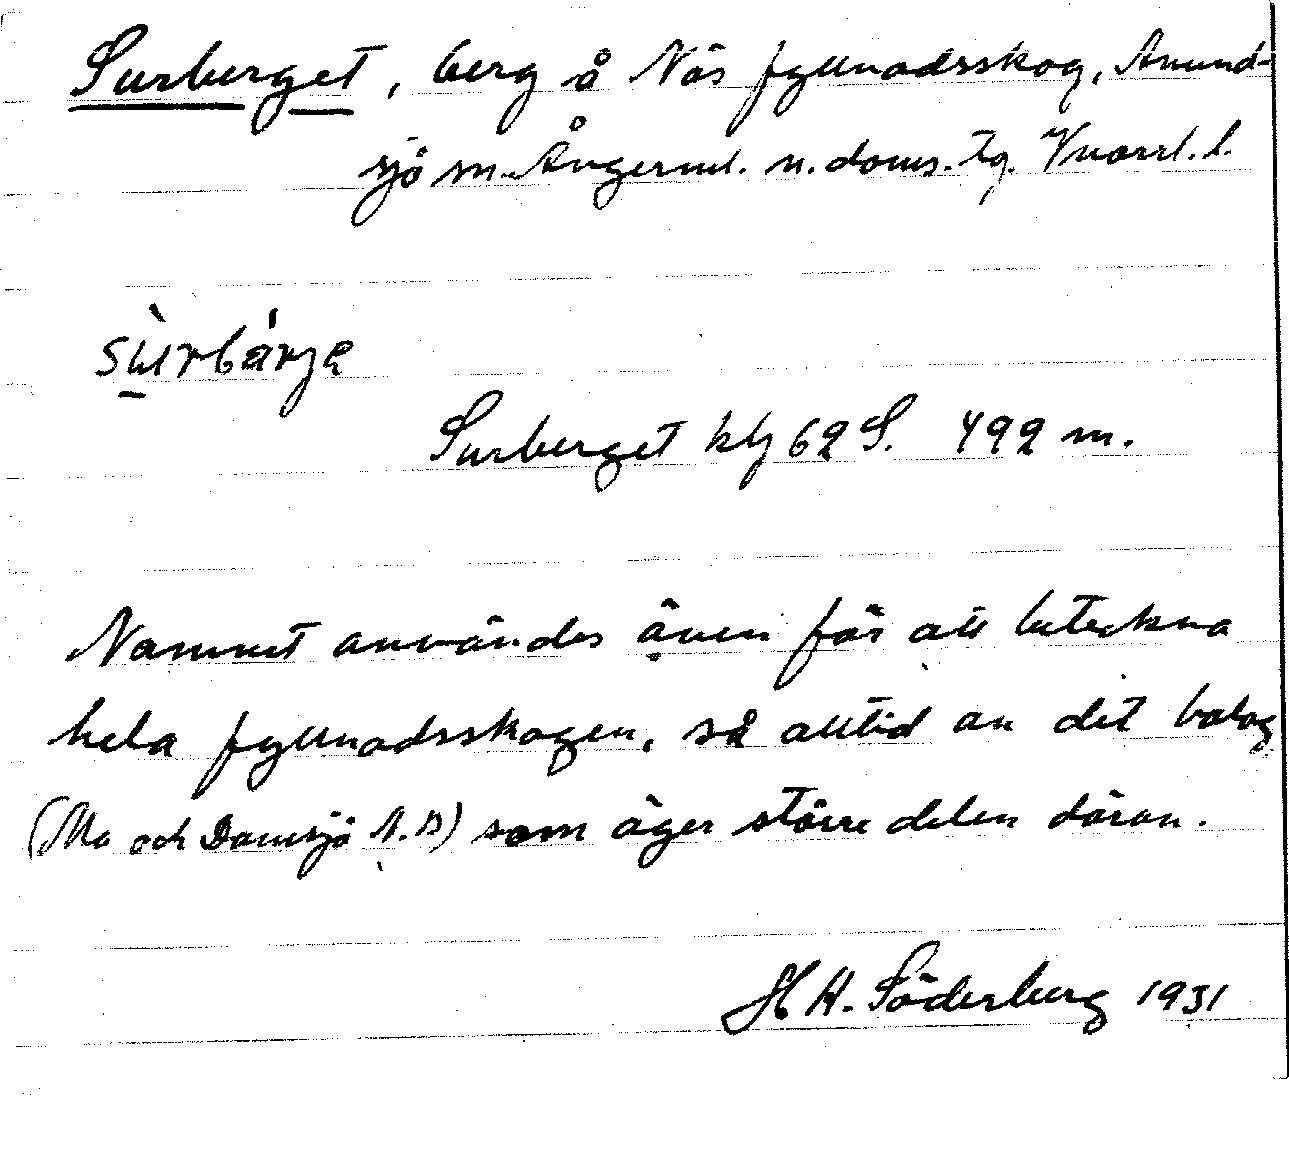 Surberget, berg å Näs fyllnadsskog, Anund-
sjö sn. Ångerml. n. doms. tg. Vnorrl. l.
sùrbárje
Surberget blj 62 S. 492 m.
Namnet användes även för att beteckna
hela fyllnadsskogen, så alltid av det bolag
(Mo och Domsjö A.B) som äger större delen därav.
H A. Söderberg 1931